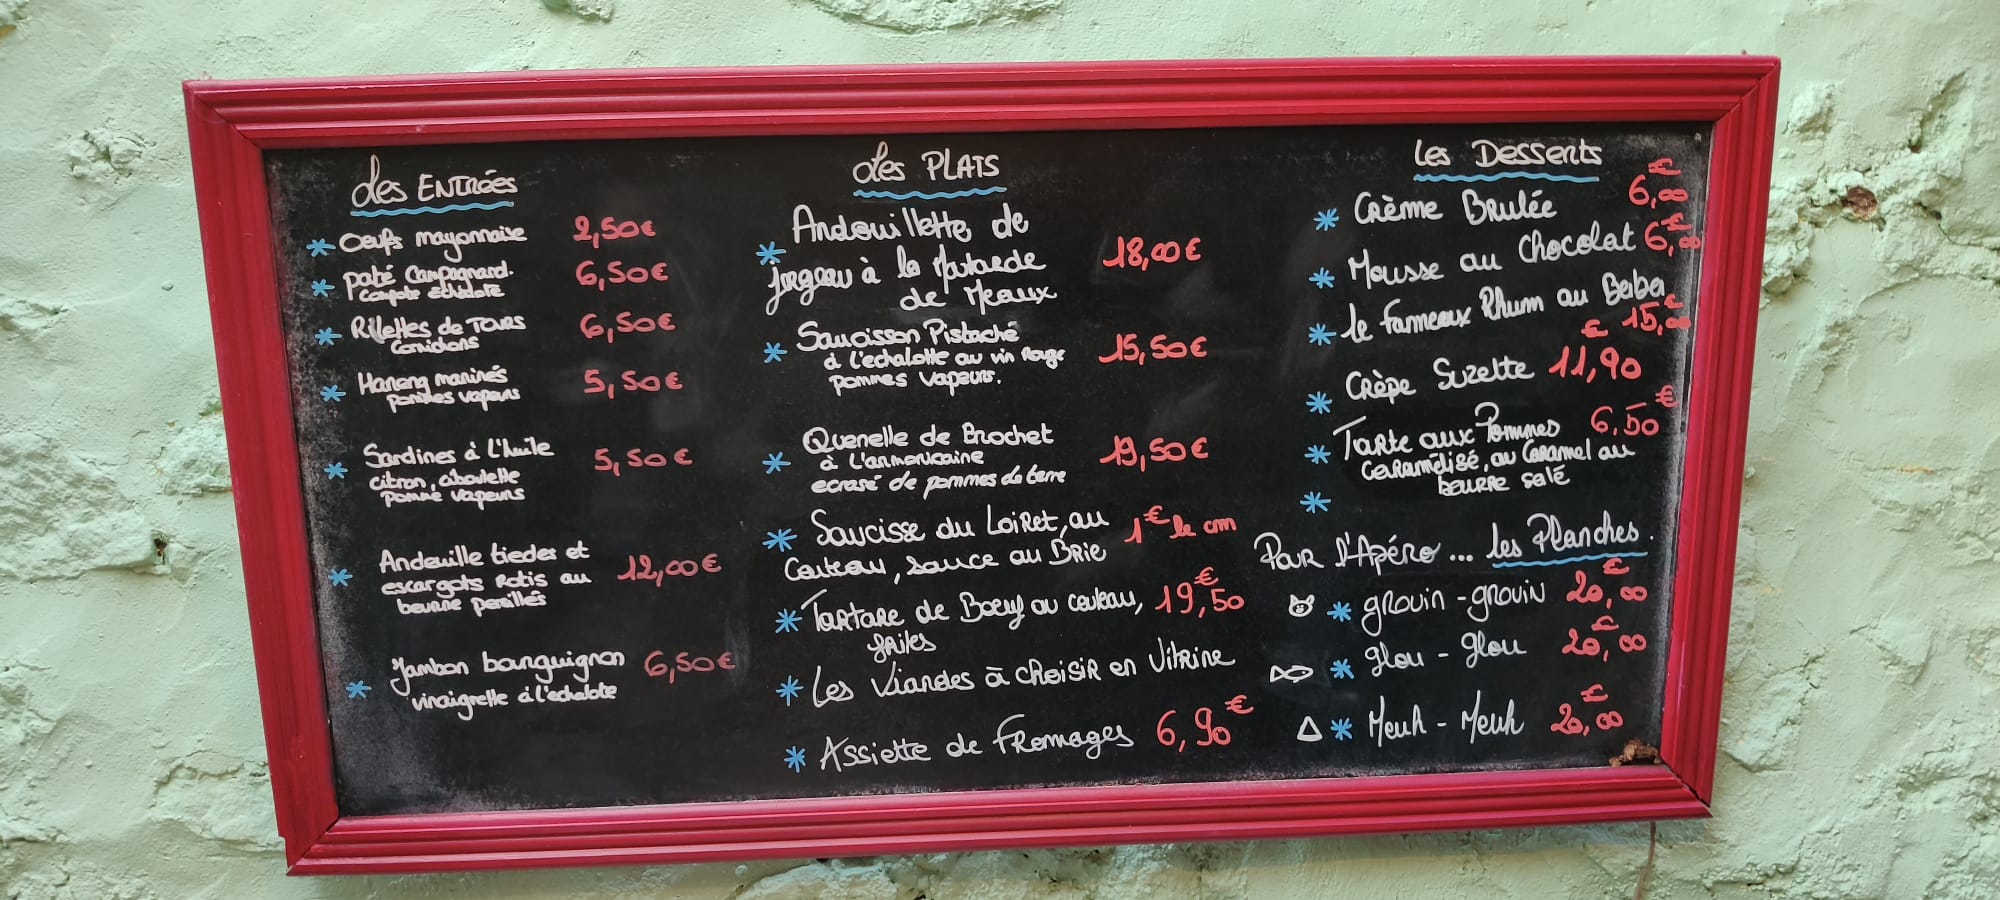 Les ENTRÉES
Oeufs mayonnaise 2,50€
paté Campagnard. 6,50€
Compote Echalote
Rillettes de TOURS 6,50€
Cornichons
Hareng marinés 5,50€
pommes vapeurs
Sardines à l'huile 5,50€
citron, ciboulette
Pomme vapeurs
Andouille tiedes et
escargots Rotis au 12,00€
beurre persillés
Jambon bourguignon 6,50€
vinaigrette à l'echalote
Les PLATS
Andouillette de
jargeau à la Moutarde 18,00€
de Meaux
Saucisson Pistaché
à l'echalotte au vin Rouge 15,50€
pommes vapeurs.
Quenelle de Brochet
à L'armoricaine 19,50€
ecrasé de pommes de terre
Saucisse du Loiret, au 1€ le cm
Couteau, sauce au Brie
Tartare de Boeuf au couteau, 19,50€
frites
Les Viandes à choisir en Vitrine
Assiette de Fromages 6,90€
Les Desserts
Crème Brulée 6,00€
Mousse au Chocolat 6,00€
Le fameux Rhum au Baba
15,00€
Crèpe Suzette 11,90€
Tarte aux Pommes 6,50€
Caramélisé, au Caramel au
beurre salé
Pour l'Apéro... les Planches.
grouin - grouin 20,00€
glou - glou 20,00€
Meuh - Meuh 20,00€